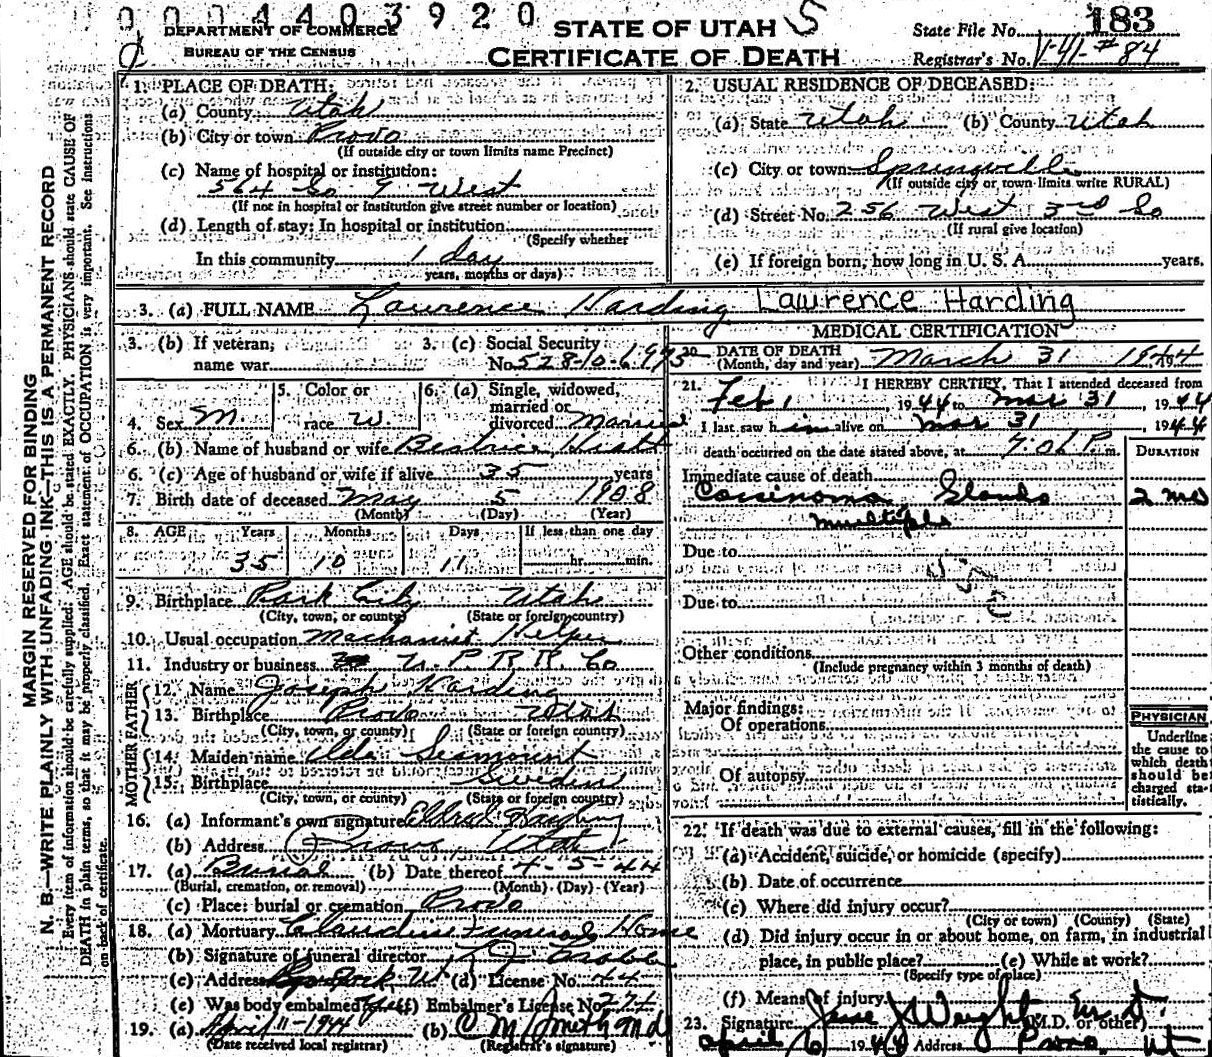 0004403920
DEPARTMENT OF COMMERCE
BUREAU OF THE CENSUS
STATE OF UTAH
CERTIFICATE OF DEATH
State File No. 183
Registrar's No. V-41-#84
MARGIN RESERVED FOR BINDING
N. B.—WRITE PLAINLY WITH UNFADING INK—THIS IS A PERMANENT RECORD
Every item of information should be carefully supplied. AGE should be stated EXACTLY. PHYSICIANS should state CAUSE OF
DEATH in plain terms, so that it may be properly classified. Exact statement of OCCUPATION is very important. See Instructions
on back of certificate.
1. PLACE OF DEATH:
(a) County Utah
(b) City or town Provo
(If outside city or town limits name Precinct)
(c) Name of hospital or institution:
564 So 7 West
(If not in hospital or institution give street number or location)
(d) Length of stay: In hospital or institution
(Specify whether
In this community 1 day
years, months or days)
2. USUAL RESIDENCE OF DECEASED:
(a) State Utah (b) County Utah
(c) City or town Springville
(If outside city or town limits write RURAL)
(d) Street No. 256 West 3rd So
(If rural give location)
(e) If foreign born, how long in U. S. A. years.
3. (a) FULL NAME Lawrence Harding Lawrence Harding
3. (b) If veteran,
name war
3. (c) Social Security
No. 528-10-6993
4. Sex M
5. Color or
race W.
6. (a) Single, widowed,
married or
divorced Married
6. (b) Name of husband or wife Beatrice
6. (c) Age of husband or wife if alive 35 years
7. Birth date of deceased May 5 1908
(Month) (Day) (Year)
8. AGE Years Months Days If less than one day
35 10 11 hr. min.
9. Birthplace Park City Utah
(City, town, or county) (State or foreign country)
10. Usual occupation Machanist Helper
11. Industry or business U. P. R. R. Co
FATHER
12. Name Joseph Harding
13. Birthplace Provo Utah
(City, town, or county) (State or foreign country)
MOTHER
14. Maiden name Alda
15. Birthplace Sweden
(City, town, or county) (State or foreign country)
16. (a) Informant's own signature Eldred Harding
(b) Address Provo, Utah
17. (a) Burial (b) Date thereof 4-5-44
(Burial, cremation, or removal) (Month) (Day) (Year)
(c) Place: burial or cremation Provo
18. (a) Mortuary Claudin Funeral Home
(b) Signature of funeral director
(c) Address (d) License No. 44
(e) Was body embalmed? yes (f) Embalmer's License No. 274
19. (a) April 11-1944 (b) C M Smith Md
(Date received local registrar) (Registrar's signature)
MEDICAL CERTIFICATION
20. DATE OF DEATH
(Month, day and year) March 31 1944
21. I HEREBY CERTIFY, That I attended deceased from
Feb 1, 1944 to Mar 31, 1944
I last saw him alive on Mar 31 1944
death occurred on the date stated above, at 7:06 P. m.
DURATION
Immediate cause of death
Carsinoma Glands 2 mo
multiple
Due to
Due to
Other conditions
(Include pregnancy within 3 months of death)
Major findings:
Of operations
Of autopsy
PHYSICIAN
Underline
the cause to
which death
should be
charged sta-
tistically.
22. If death was due to external causes, fill in the following:
(a) Accident, suicide, or homicide (specify)
(b) Date of occurrence
(c) Where did injury occur?
(City or town) (County) (State)
(d) Did injury occur in or about home, on farm, in industrial
place, in public place? (e) While at work?
(Specify type of place)
(f) Means of injury
23. Signature Jesse J Weight, M.D.
(M.D. or other)
April 6 1944 Address Provo Ut